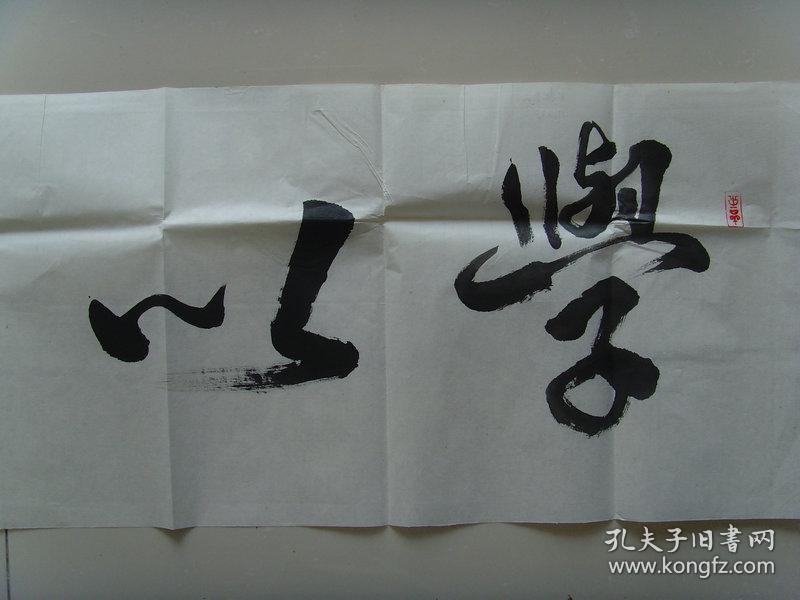 學以
孔夫子旧書网
www.kongfz.com